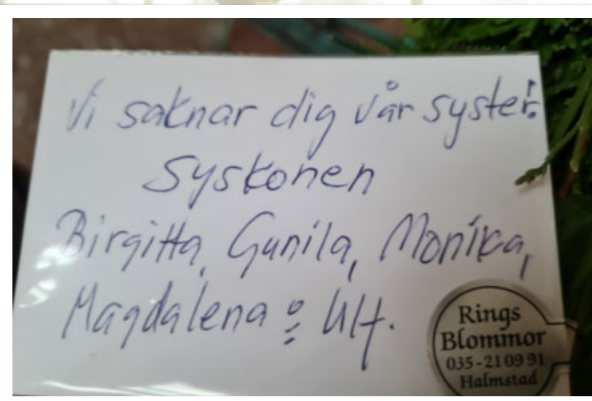 Vi saknar dig vår syster.
Syskonen
Birgitta, Gunila, Monika,
Magdalena o Ulf.
Rings
Blommor
035-21 09 91
Halmstad